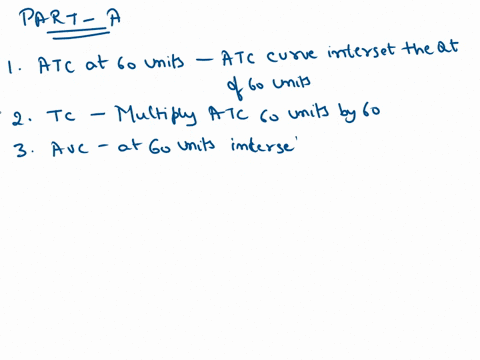 PART-A
1. ATC at 60 units - ATC curve interset the Qt
of 60 units
2. TC - Multiply ATC 60 units by 60
3. AVC - at 60 units interse